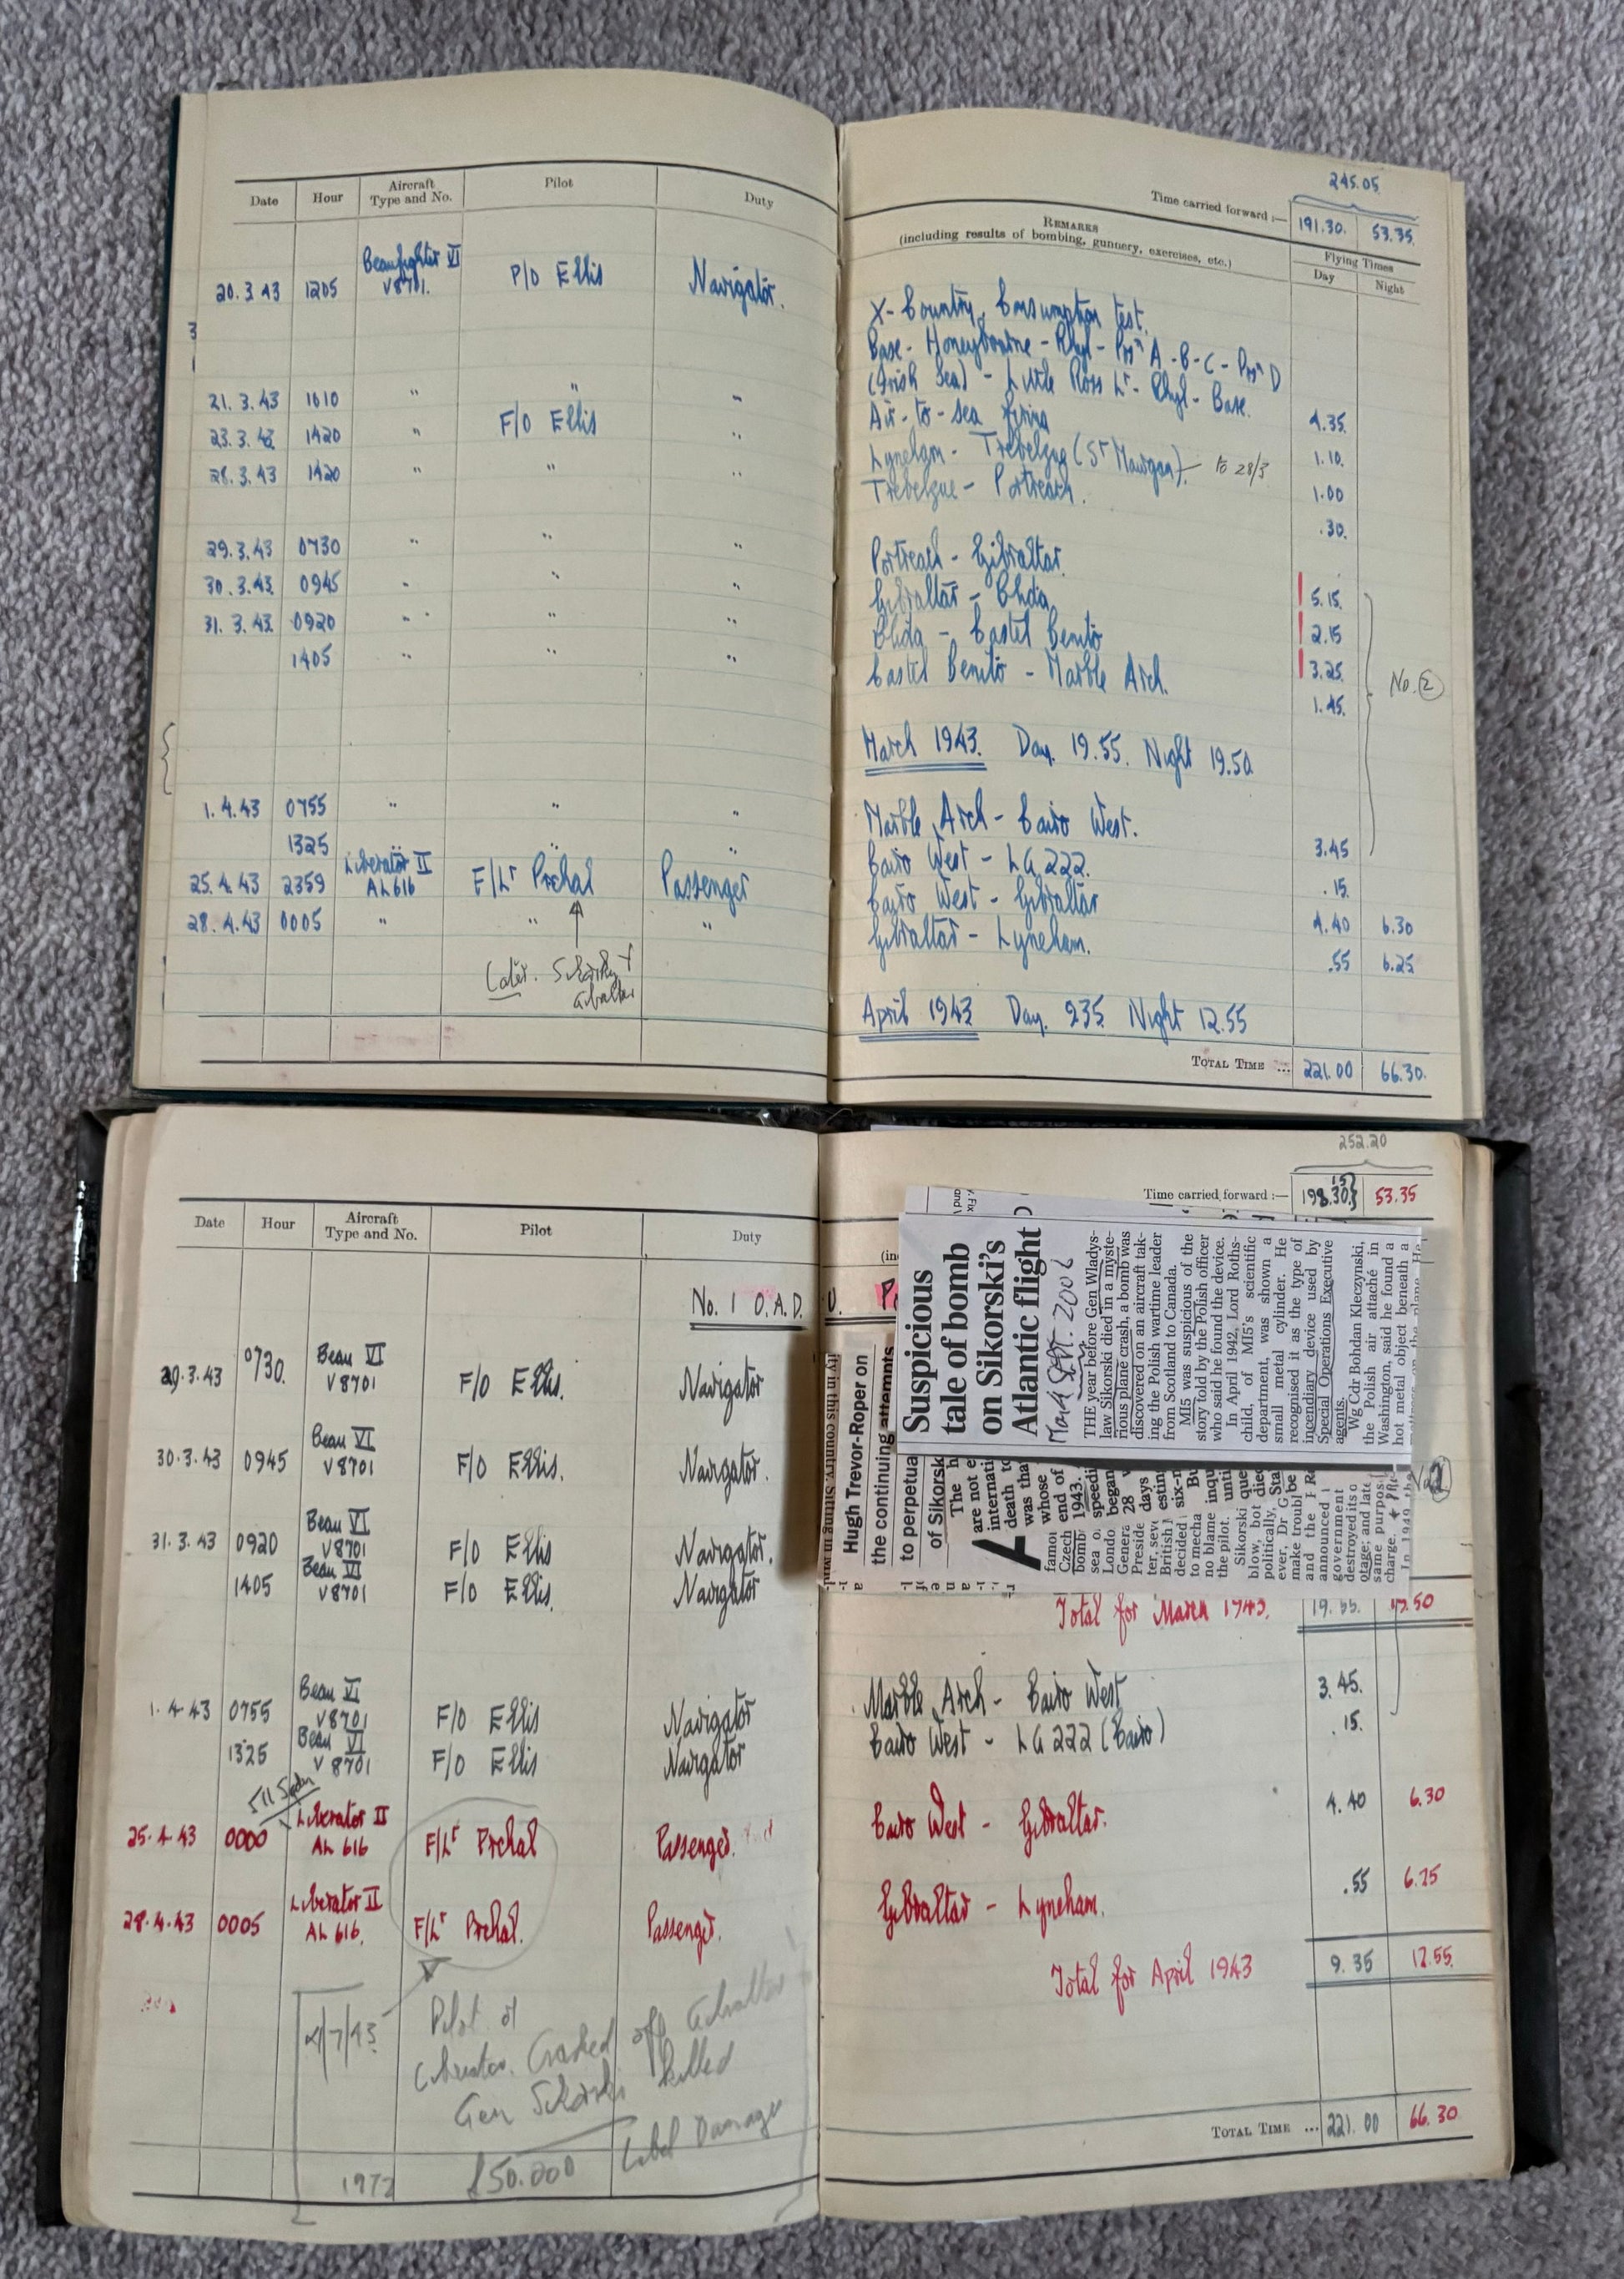 245.05
Time carried forward :— 191.30. 53.35.
Date Hour Aircraft Type and No. Pilot Duty
REMARKS
(including results of bombing, gunnery, exercises, etc.)
Flying Times
Day Night
20.3.43 1205 Beaufighter VI V8701. P/O Ellis Navigator.
X-Country, Consumption test.
Base - Honeybourne - Rhyl - Posn A - B - C - Posn D
(Irish Sea) - Little Ross Lt - Rhyl - Base. 4.35.
21.3.43 1610 " " " Air-to-sea firing 1.10.
23.3.43 1420 " F/O Ellis " Lyneham - Trebelzue (St Mawgan) - to 28/3. 1.00
28.3.43 1420 " " " Trebelzue - Portreath. .30.
29.3.43 0730 " " " Portreath - Gibraltar. 5.15.
30.3.43 0945 " " " Gibraltar - Blida 2.15
31.3.43 0920 " " " Blida - Castel Benito 3.25.
1405 " " " Castel Benito - Marble Arch. 1.45.
No. 2
March 1943. Day. 19.55. Night 19.50
1.4.43 0755 " " " Marble Arch - Cairo West. 3.45
1325 " " " Cairo West - LG 222. .15.
25.4.43 2359 Liberator II AL616 F/Lt Prchal Passenger Cairo West - Gibraltar 4.40 6.30
28.4.43 0005 " " " Gibraltar - Lyneham. .55 6.25
Later. Sikorsky
Gibraltar
April 1943 Day. 935. Night 12.55
TOTAL TIME ... 221.00 66.30.
252.20
Time carried forward :— 198.30 15 53.35
Date Hour Aircraft Type and No. Pilot Duty
No. 1 O.A.D.U.
29.3.43 0730. Beau VI V8701 F/O Ellis. Navigator
30.3.43 0945 Beau VI V8701 F/O Ellis. Navigator.
31.3.43 0920 Beau VI V8701 F/O Ellis Navigator.
1405 Beau VI V8701 F/O Ellis. Navigator
Suspicious
tale of bomb
on Sikorski's
Atlantic flight
2006
THE year before Gen Wladys-
law Sikorski died in a myste-
rious plane crash, a bomb was
discovered on an aircraft tak-
ing the Polish wartime leader
from Scotland to Canada.
MI5 was suspicious of the
story told by the Polish officer
who said he found the device.
In April 1942, Lord Roths-
child, of MI5's scientific
department, was shown a
small metal cylinder. He
recognised it as the type of
incendiary device used by
Special Operations Executive
agents.
Wg Cdr Bohdan Kleczynski,
the Polish air attaché in
Washington, said he found a
hot metal object beneath a
Hugh Trevor-Roper on
the continuing attempts
to perpetua
of Sikorsk
Total for March 1943. 19.55. 19.50
1.4.43 0755 Beau VI V8701 F/O Ellis Navigator Marble Arch - Cairo West 3.45.
1325 Beau VI V8701 F/O Ellis Navigator Cairo West - LG 222 (Cairo) .15.
511 Sqdn
25.4.43 0000 Liberator II AL 616 F/Lt Prchal Passenger. Cairo West - Gibraltar. 4.40 6.30
28.4.43 0005 Liberator II AL 616. F/Lt Prchal. Passenger. Gibraltar - Lyneham. .55 6.25
Total for April 1943 9.35 12.55.
4/7/43 Pilot of
Liberator. Crashed off Gibraltar
Gen Sikorski killed
1972 £50.000 Libel Damages
TOTAL TIME ... 221.00 66.30